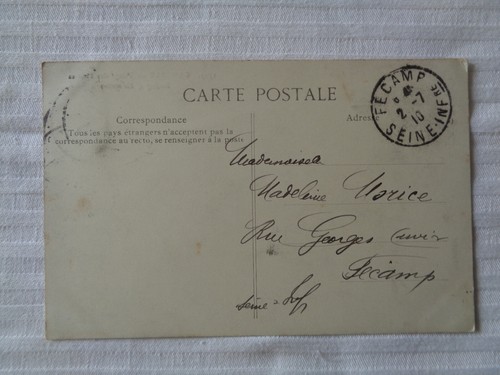 CARTE POSTALE
Correspondance
Tous les pays étrangers n'acceptent pas la
correspondance au recto, se renseigner à la poste
Adresse
FÉCAMP
2 -7
10
SEINE-INFRE
Mademoiselle
Madeleine Vorice
Rue Georges Cuvier
Fécamp
Seine = Inf